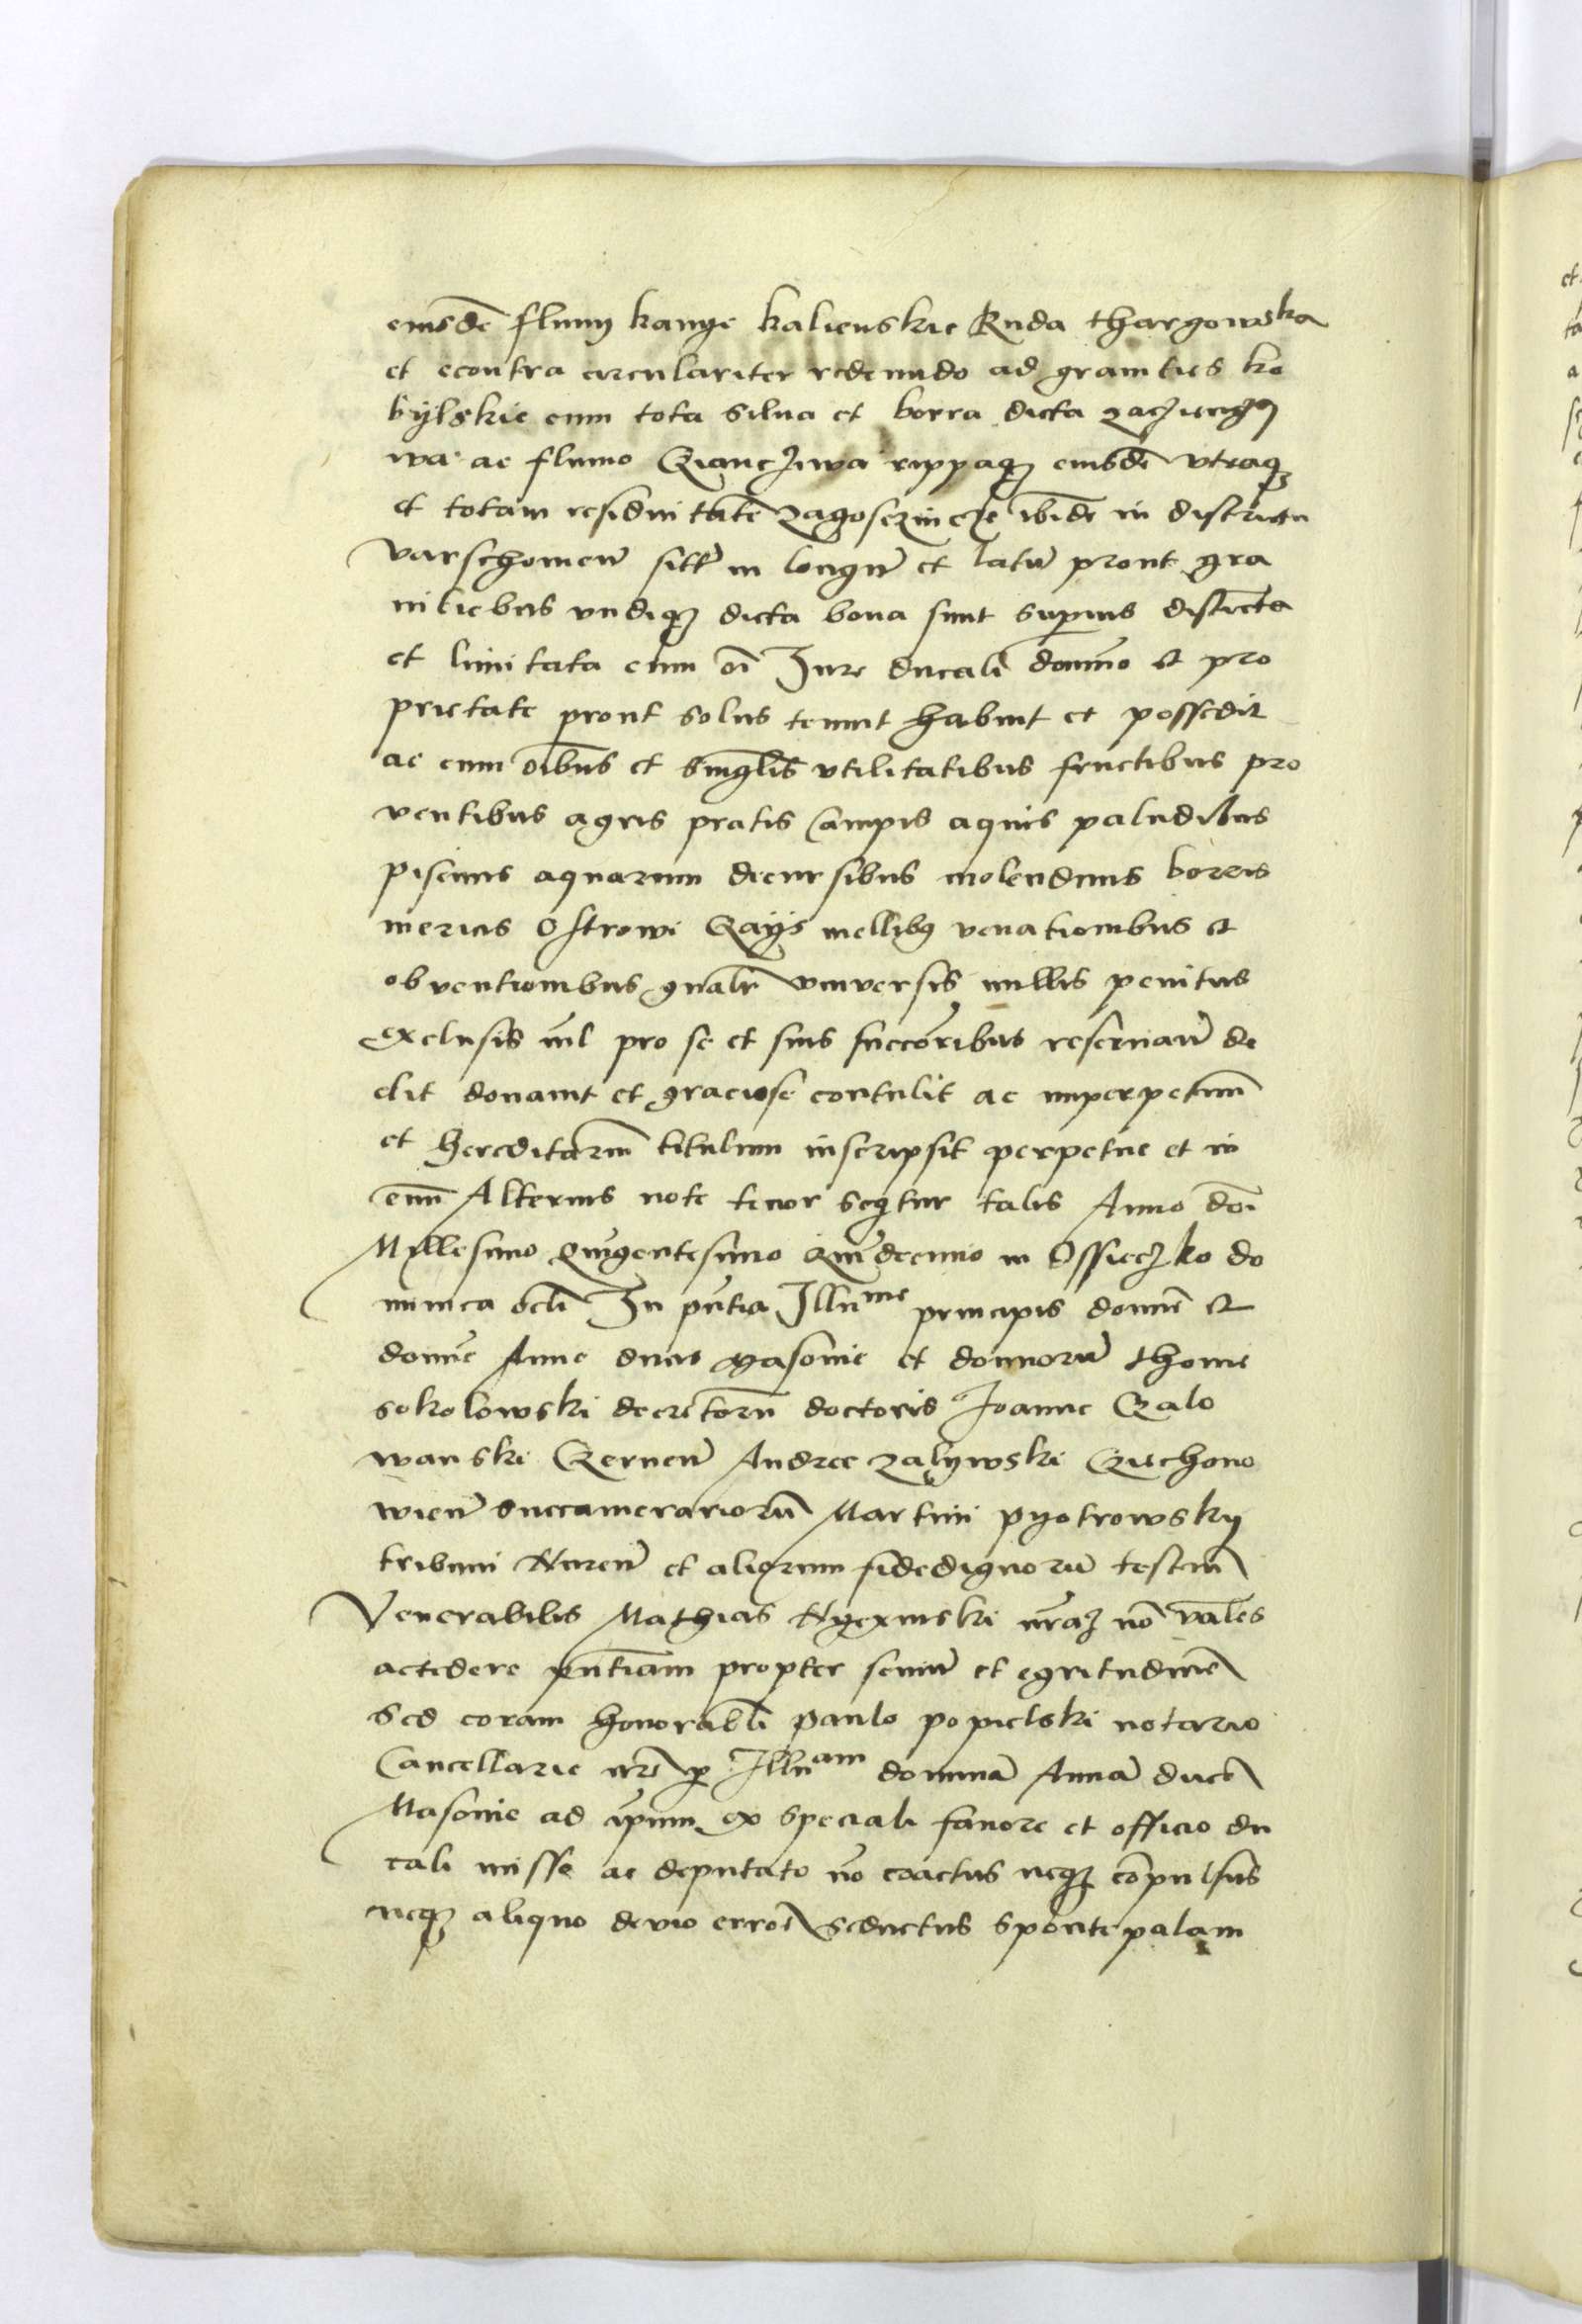 eiusdẽ fluuij kanye kalienskie Ruda thargowska
et econtra circulariter redeundo ad granities ko
bijlskie cum tota silua et borra dicta
wa ac fluuio rippaqʒ eiusdẽ vtraqʒ
et totam residuitatẽ ibidẽ in districtu
varschouieñ sitã in longũ et latũ prout gra
nitiebus vndiqʒ dicta bona sunt superius distincta
et limitata cum oĩ Iure ducali dominio et pro
prietate prout solus tenuit habuit et possedit
ac cum oĩbus et singlis vtilitatibus fructibus pro
uentibus agris pratis Campis aquis paludibus
piscinis aquarum decursibus molendinis borris
mericis Ostrowi Gayis mellibꝯ venationibus et
obventionibus gñalr vniversis nullis penitus
exclusis nil pro se et suis succoribus reseruañ de
dit donauit et graciose contulit ac inperpetuũ
et hereditariũ titulum inscripsit perpetue et in
euũ Alterius note tenor seqtur talis Anno doĩ
Millesimo Quĩgentesimo Quĩdecimo in Ossieczko do
minica ocli In pñtia Illũme principis domiñ et
domine Anne ducis Masouie et dominorũ thome
sokolowski decretorũ doctoris Joanne Galo
wanski Czerneñ Andree zalywski Cziechono
wieñ succamerariorũ Martini pyotrowsky
tribuni Nureñ et aliorum fidedignorũ testiũ
Venerabilis Mathias Nyexinski nraʒ nõ valẽs
actedere pñtiam propter seniũ et egritudinẽ
sed coram honorabli paulo popielski notario
Cancellarie nrẽ ꝑ Illũam dominã Annã ducẽ
Masouie ad ipum ex speciali fauore et officio du
cali misse ac deputato nõ coactus neqʒ cõpulsus
neqʒ aliquo devio errorẽ seductus sponte palam